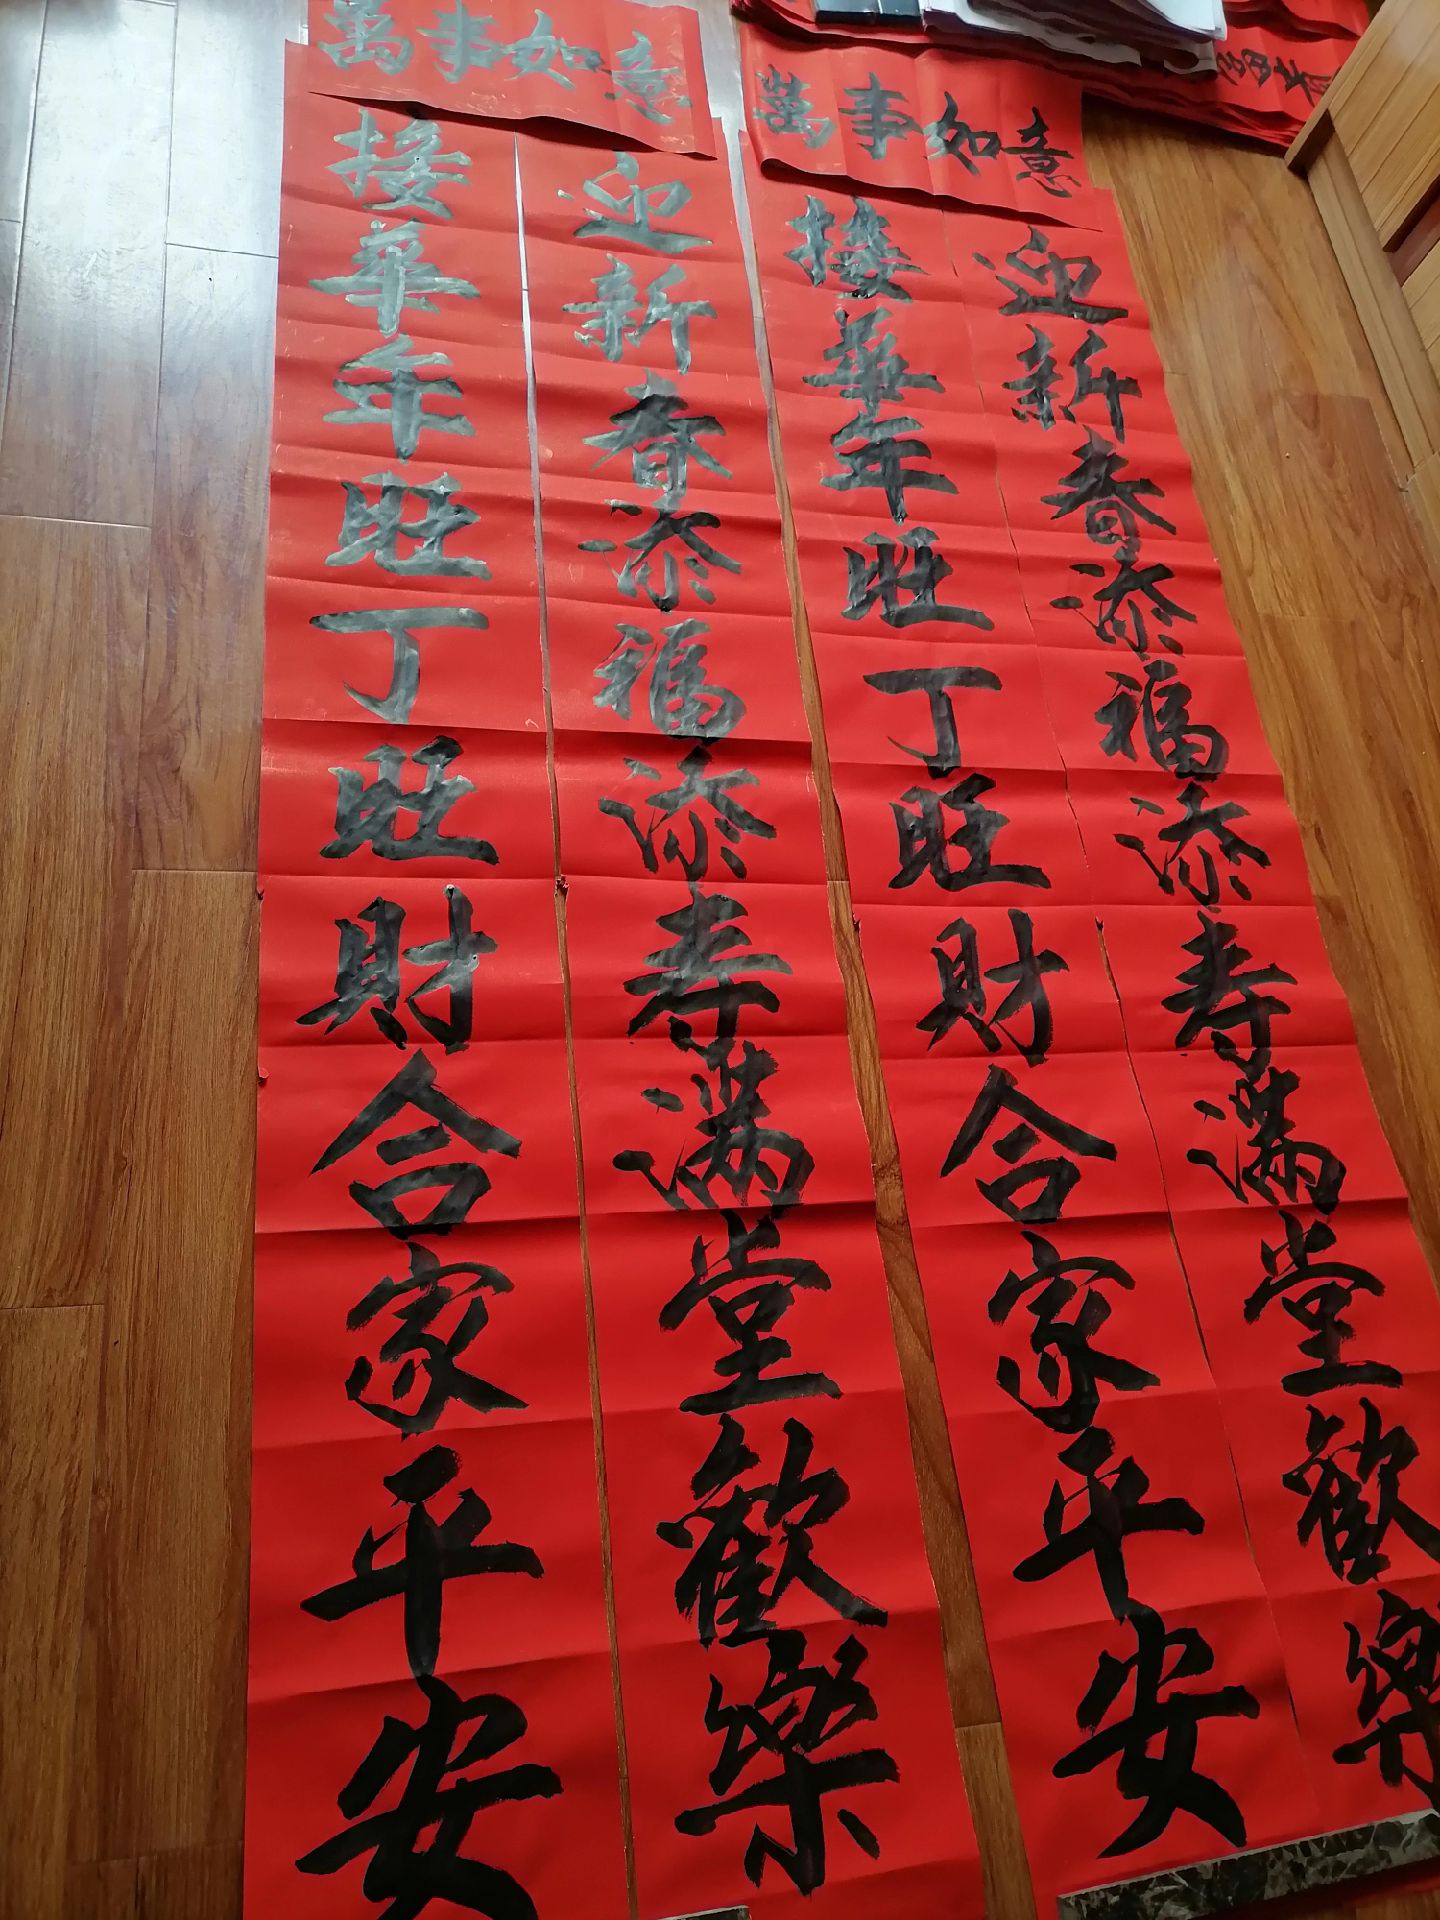 萬事如意
迎新春添福添寿满堂歡樂
接华年旺丁旺財合家平安
萬事如意
迎新春添福添寿满堂歡樂
接華年旺丁旺財合家平安